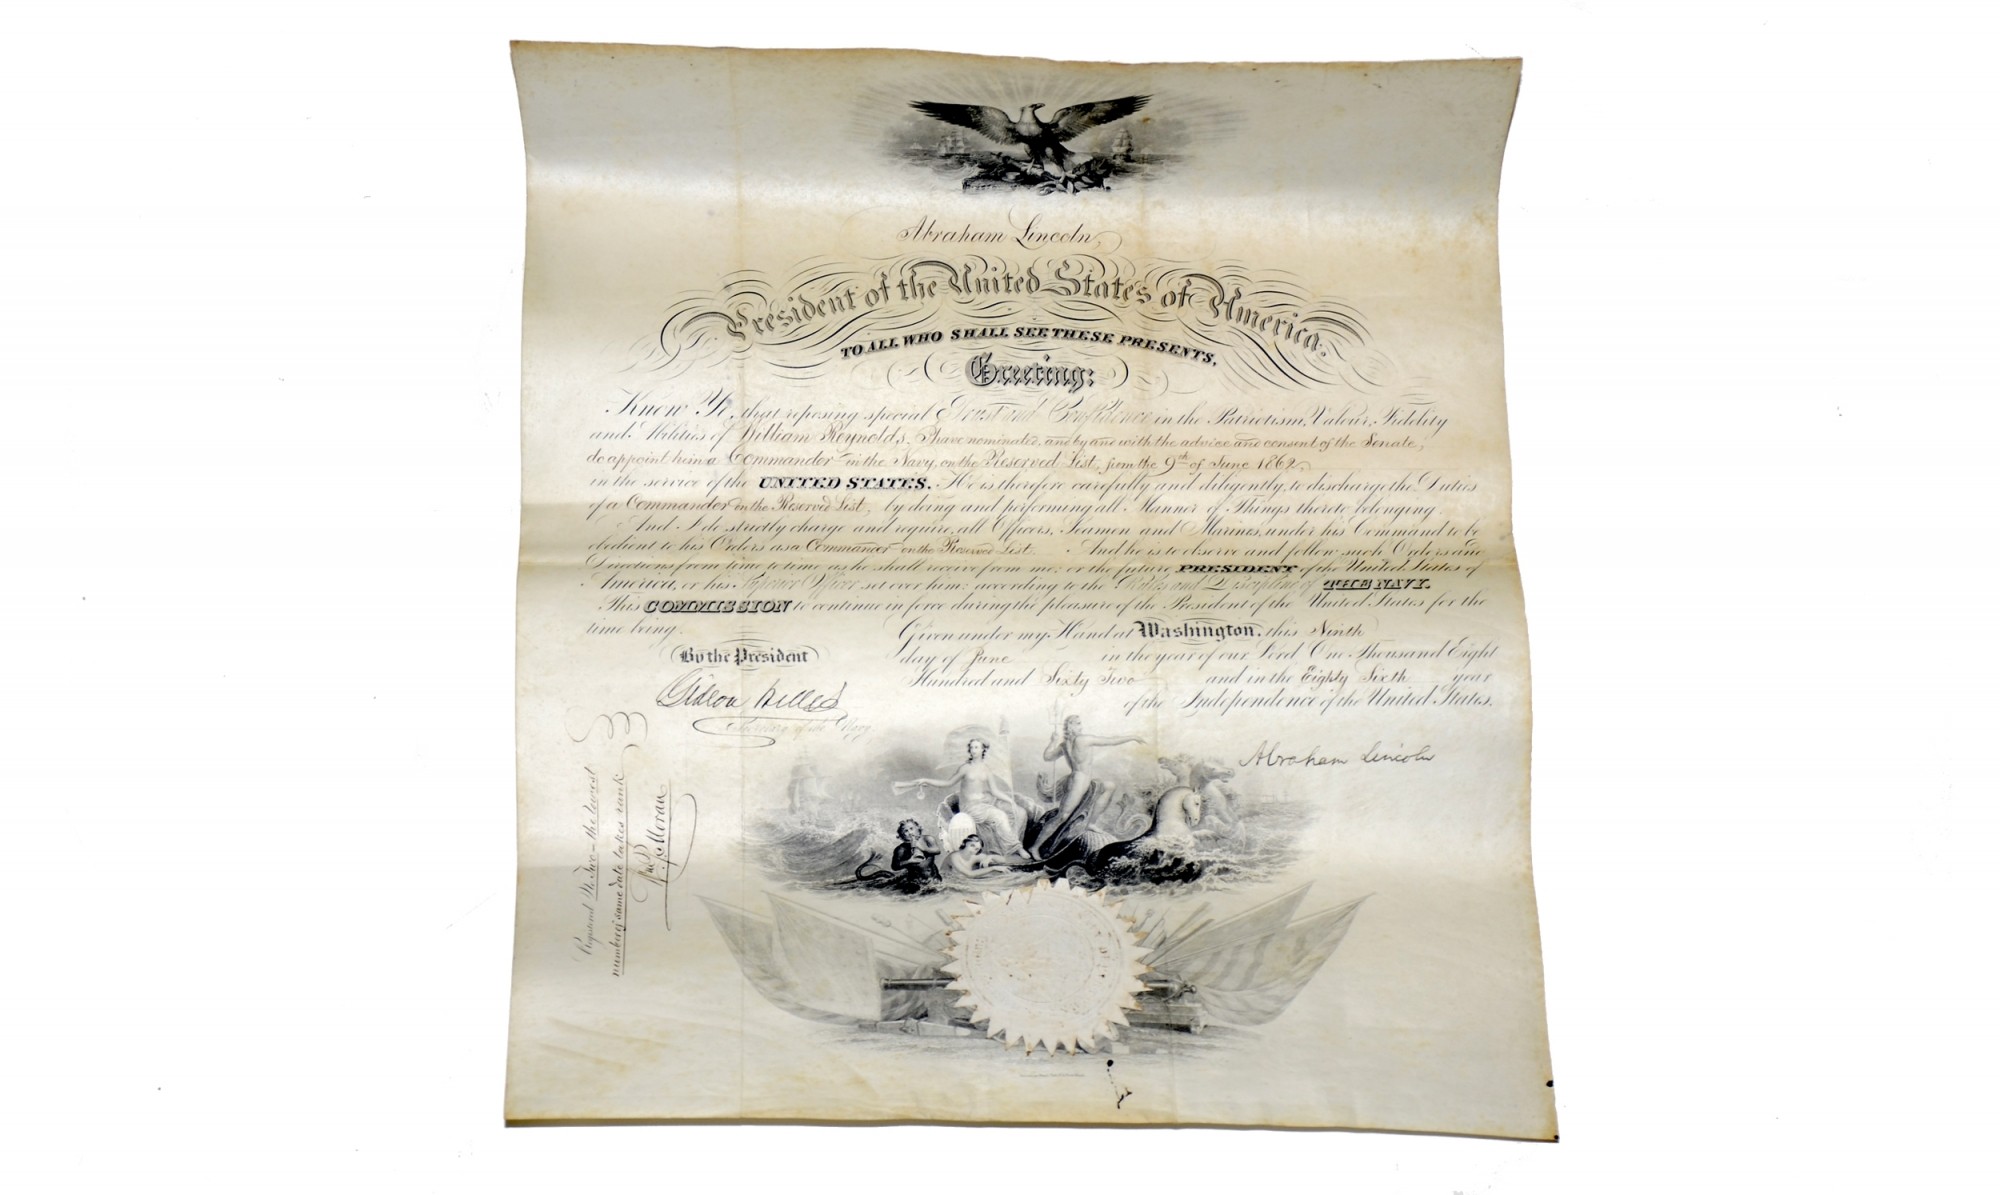 Abraham Lincoln,
President of the United States of America.
TO ALL WHO SHALL SEE THESE PRESENTS,
Greeting:
Know Ye, that reposing special Trust and Confidence in the Patriotism, Valour, Fidelity
and Abilities of William Reynolds, I have nominated, and by and with the advice and consent of the Senate,
do appoint him a Commander in the Navy, on the Reserved List, from the 9th of June 1862,
in the service of the UNITED STATES. He is therefore carefully and diligently, to discharge the Duties
of a Commander on the Reserved List, by doing and performing all Manner of Things thereto belonging.
And I do strictly charge and require, all Officers, Seamen and Marines, under his Command to be
obedient to his Orders as a Commander on the Reserved List. And he is to observe and follow such Orders and
Directions from time to time as he shall receive from me; or the future PRESIDENT of the United States of
America, or his Superior Officer set over him; according to the Rules and Discipline of THE NAVY.
This COMMISSION to continue in force during the pleasure of the President of the United States for the
time being.
Given under my Hand at Washington, this Ninth
day of June in the year of our Lord One Thousand Eight
Hundred and Sixty Two and in the Eighty Sixth year
of the Independence of the United States.
By the President
Gideon Welles
Secretary of the Navy
Abraham Lincoln
Registered No Two - the lowest
number of same date takes rank
Moran